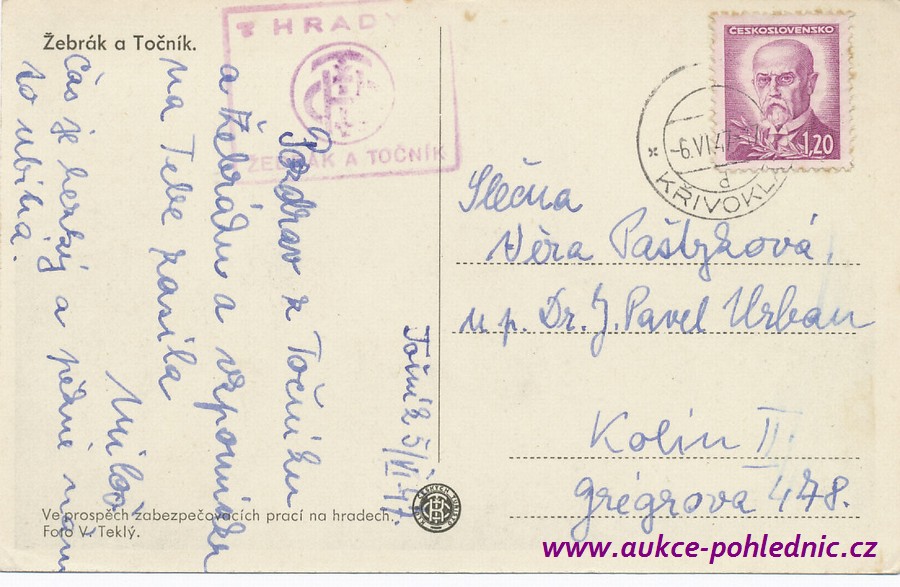 Žebrák a Točník.
HRADY
ŽEBRÁK A TOČNÍK
Točník 5/VI 47
Pozdrav z Točníku
a Žebráku a vzpomínku
na Tebe zasílá
Miloš
Čas je hezký a pěkně nám
to ubíhá.
Ve prospěch zabezpečovacích prací na hradech.
Foto V. Teklý.
KLUB ČESKÝCH TURISTŮ
ČESKOSLOVENSKO
1,20
-6.VI.47
d
KŘIVOKL
Slečna
Věra Paštyková,
u p. Dr. J. Pavel Urban
Kolín II.
Grégrova 478.
www.aukce-pohlednic.cz